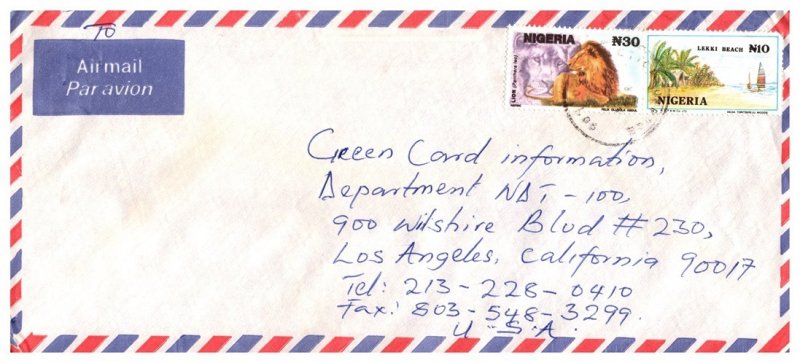 TO
Airmail
Par avion
NIGERIA ₦30
LION (Panthera leo)
LEKKI BEACH ₦10
NIGERIA
Green Card information,
Department NAT-100,
900 Wilshire Blvd # 230,
Los Angeles, California 90017
Tel: 213-228-0410
Fax: 803-548-3299.
U.S.A.